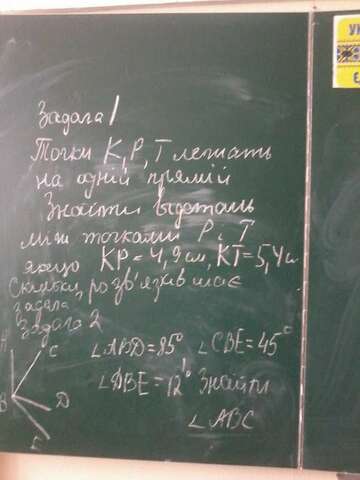 Задача 1
Точки K, P, T лежать
на одній прямій
Знайти відстань
між точками P і T
якщо KP = 4,9 см, KT = 5,4 см
Скільки розв'язків має
задача
Задача 2
∠ABD = 85° ∠CBE = 45°
∠DBE = 12° Знайти
∠ABC
A
C
B
D
E
УК
Є